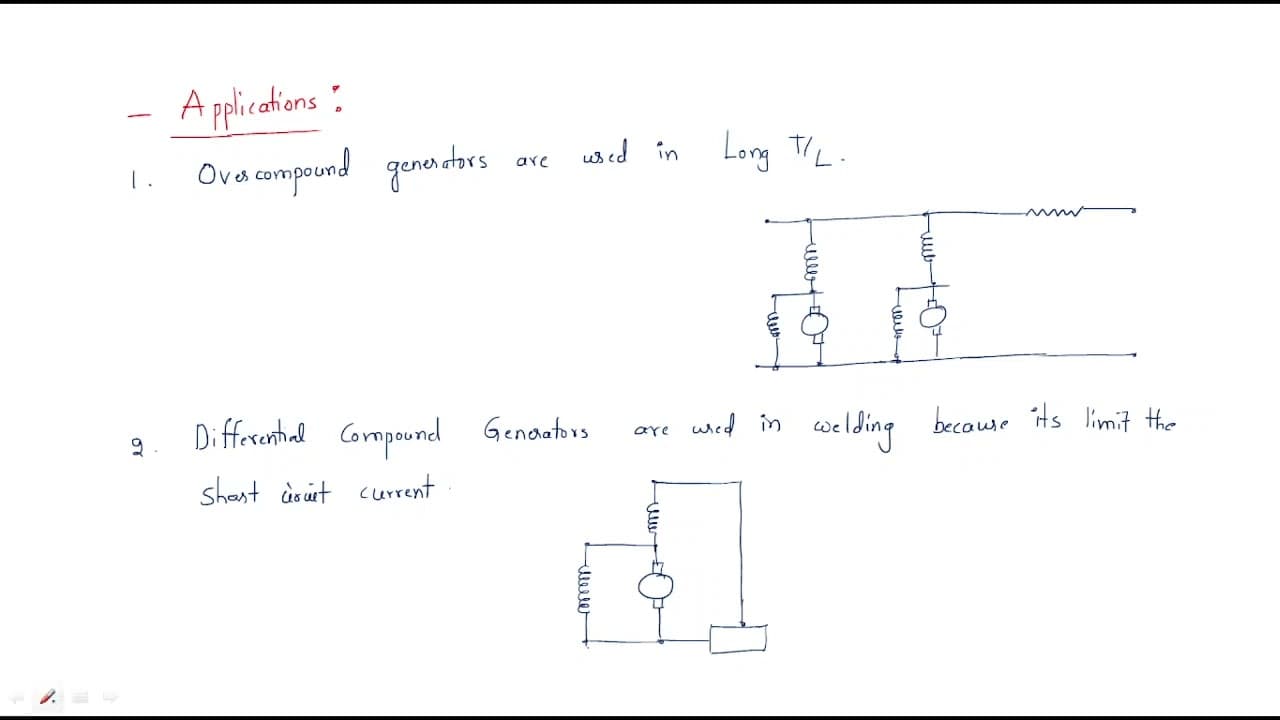 - Applications:
1. Overcompound generators are used in Long T/L.
2. Differential Compound Generators are used in welding because its limit the
short circuit current.